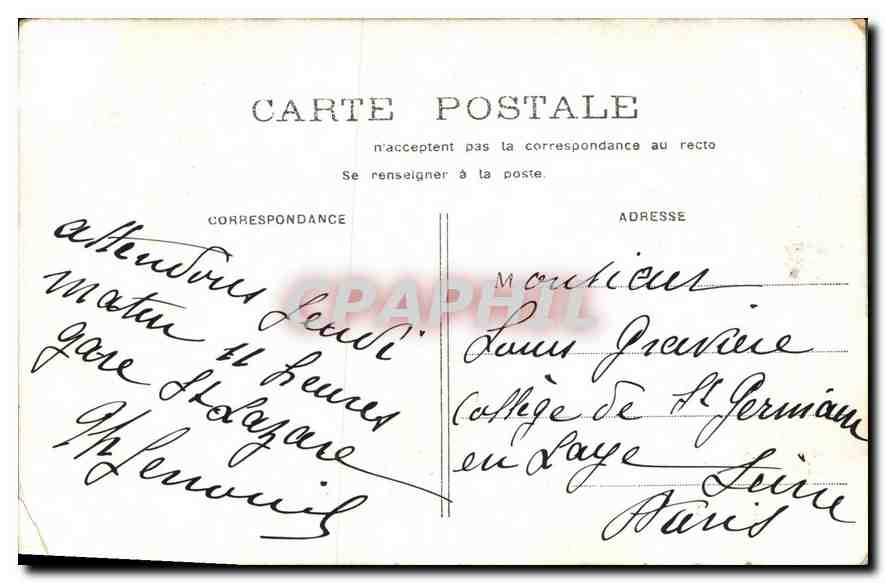 CARTE POSTALE
n'acceptent pas la correspondance au recto
Se renseigner à la poste.
CORRESPONDANCE
attendons Jeudi
matin 11 heures
gare St Lazare
ADRESSE
Monsieur
Louis Gravière
Collège de St Germain
en Laye Seine
Paris
CPAPHIL